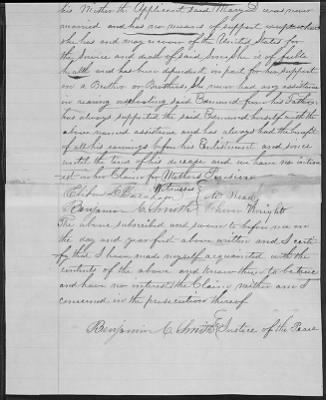 his Mother the Applicant said Mary D was never
married and has no means of support except what
she has and may receive of the United States for
the Service and death of said Joseph is of feeble
health and has been dependent in part for her support
on a Brother or Brothers She never had any assistance
in rearing said Edmund from his Father
has always supported the said Edmund himself with the
above named assistance and has always had the benefit
of all his earnings before his Enlistment and since
until the time of his decease and we have no inter
est in her Claim for Mothers Pension
Witnesses
Benjamin C Smith Wright
The above subscribed and sworn to before me on
the day and year first above written and I certi
fy that I have made myself acquainted with the
contents of the above and know them to be true
and have no interest in the Claim neither am I
concerned in the prosecution thereof
Benjamin C Smith Justice of the Peace